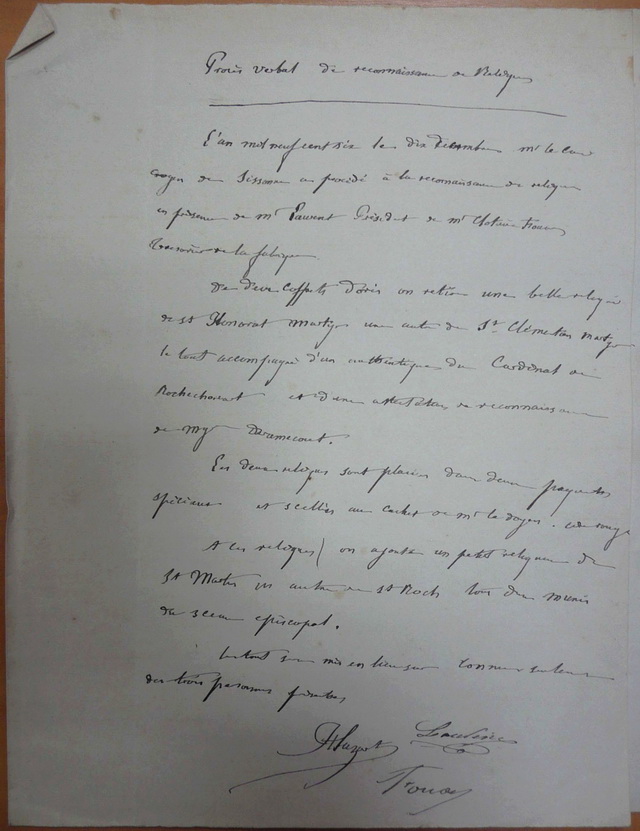 Procès verbal de reconnaissance de Reliques
L'an mil neuf cent six le dix décembre Mr le Curé
doyen de Sissonne a procédé à la reconnaissance de reliques
en présence de Mr Laurent Président de Mr
Trésorier de la fabrique.
De deux coffrets on retire une belle relique
de St Honorat martyr une autre de St Clémentin martyr
le tout accompagné d'un authentique du Cardinal de
Rochechouart et d'une attestation de reconnaissance
de Mgr Duramecourt.
Les deux reliques sont placées dans deux paquets
spéciaux et scellées au cachet de Mr le doyen. cire rouge
A ces reliques on ajoute un petit reliquaire de
St Martin un autre de St Roch tous deux munis
du sceau épiscopal.
Le tout sera mis en lieu sur
des trois personnes